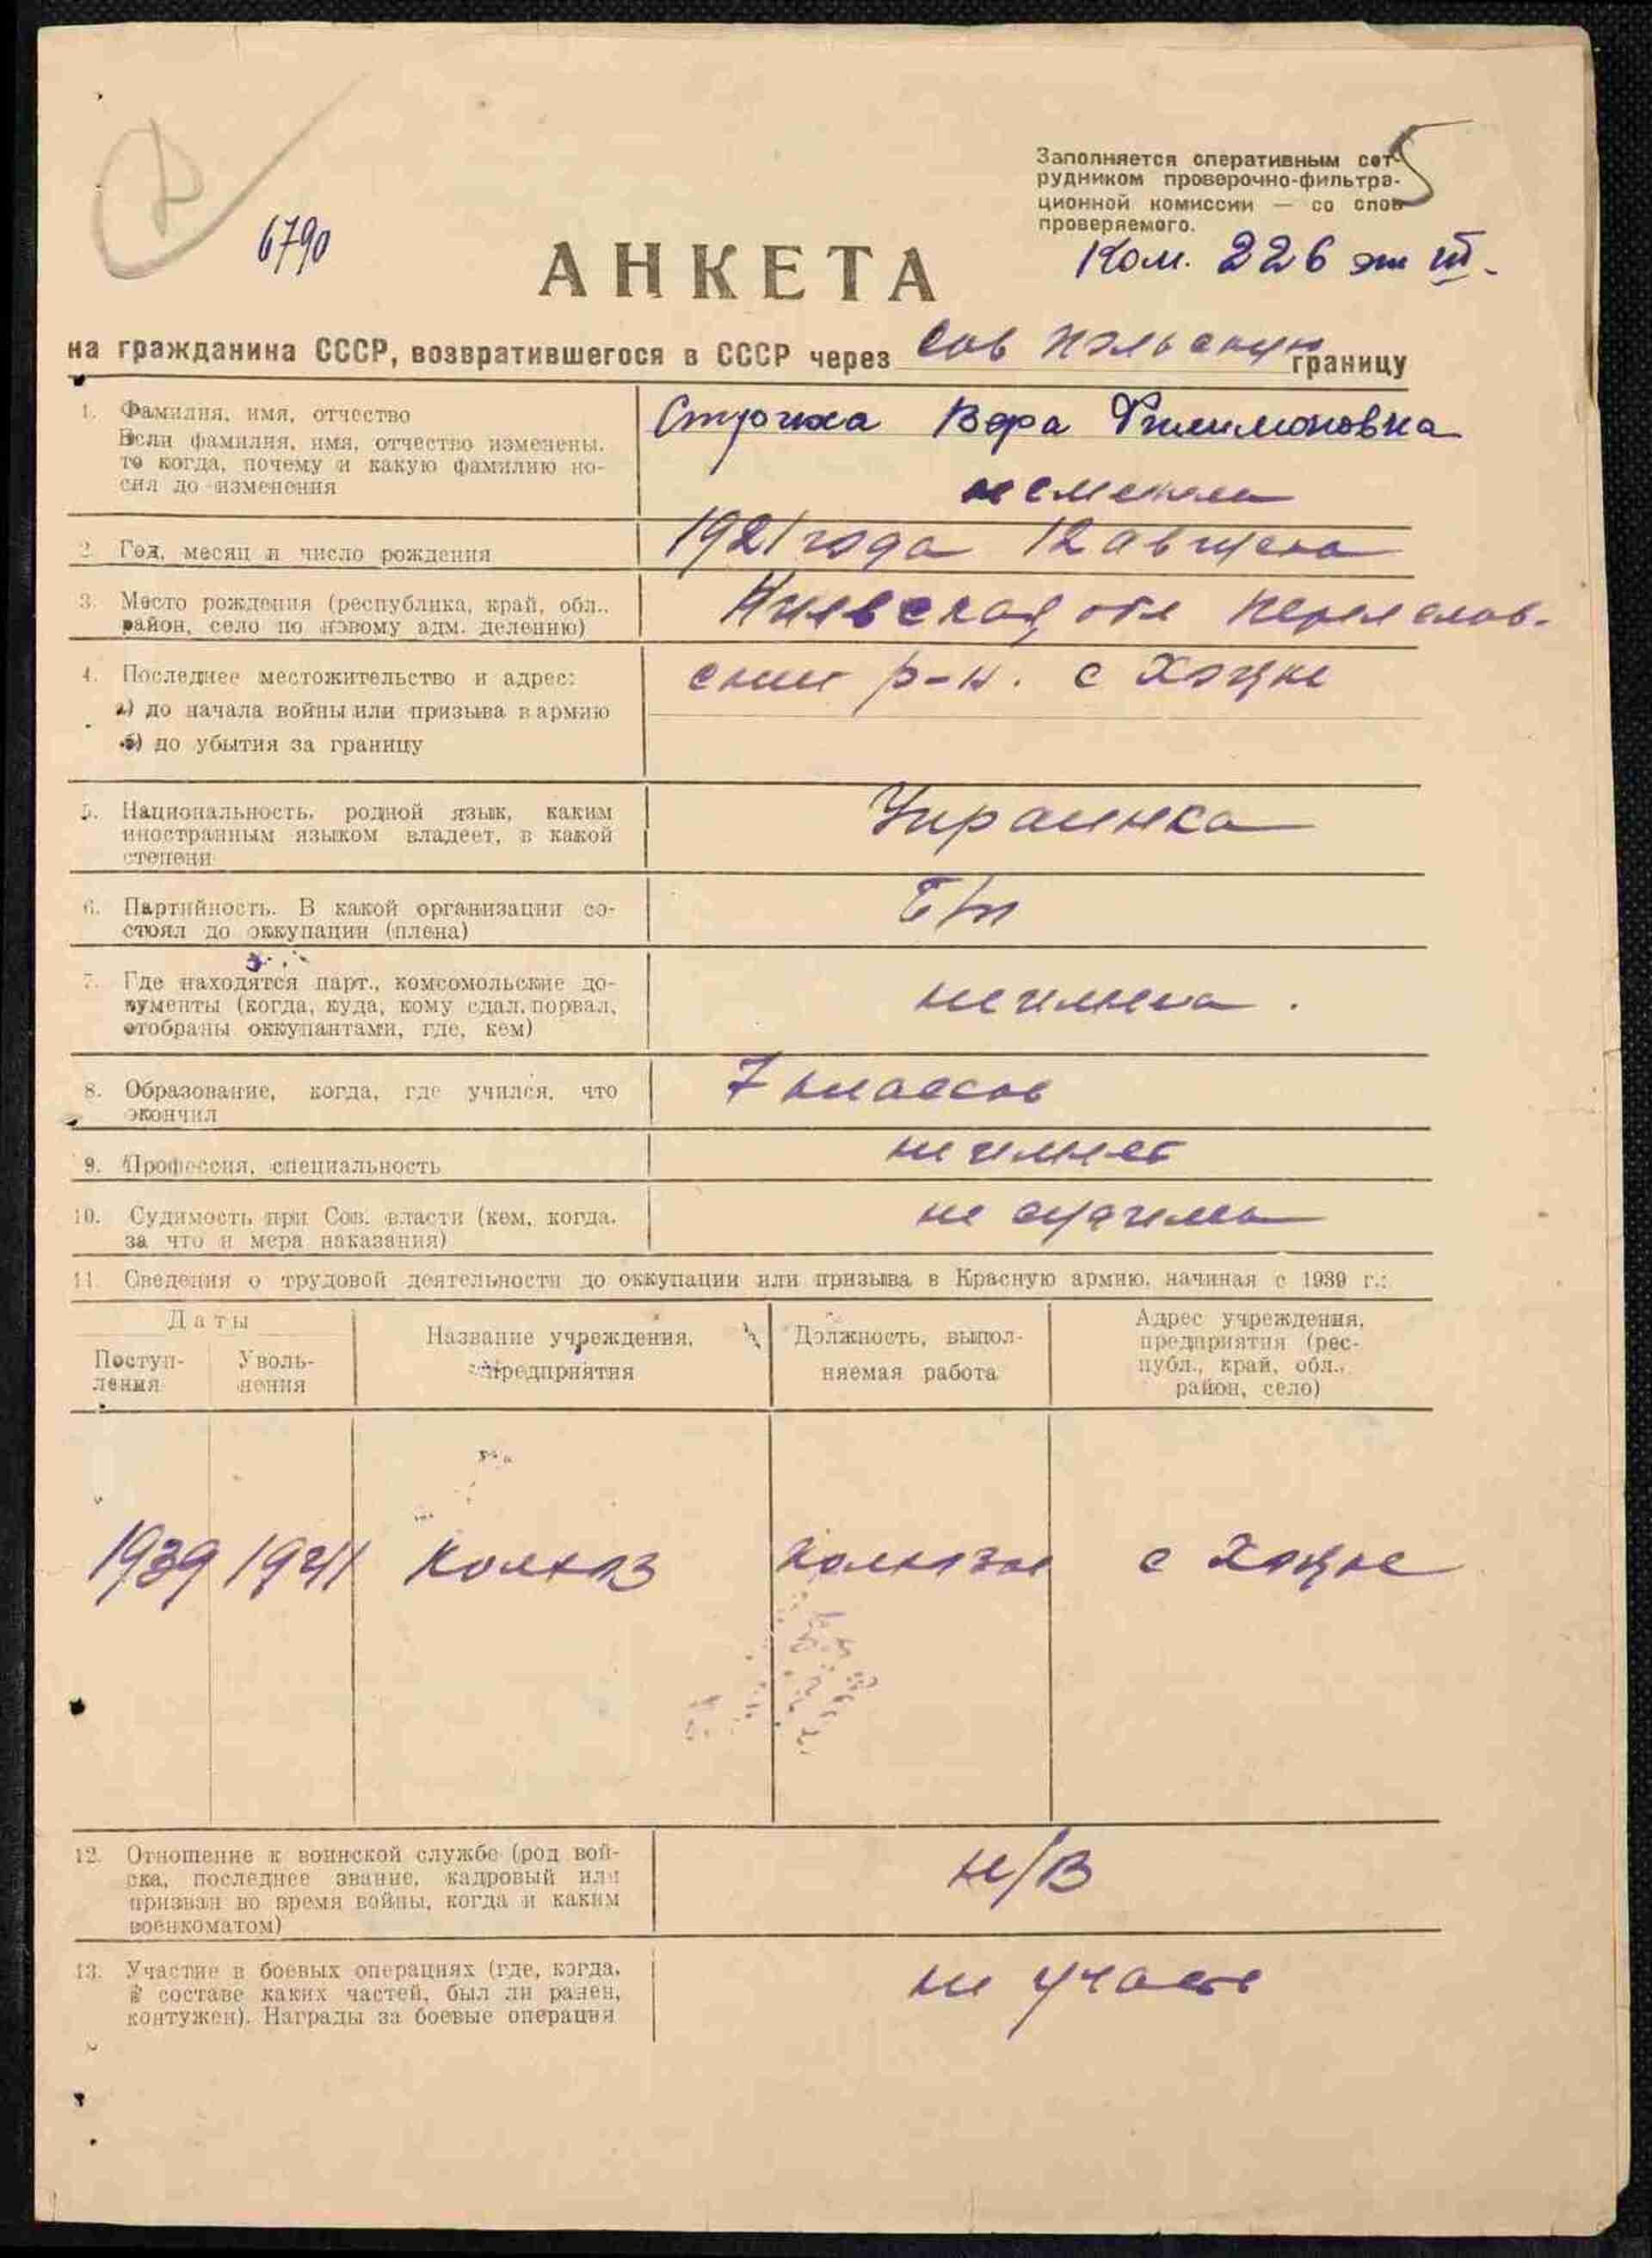 5
Заполняется оперативным сот-
рудником проверочно-фильтра-
ционной комиссии — со слов
проверяемого.
6790
Ком. 226 эт III.
АНКЕТА
на гражданина СССР, возвратившегося в СССР через Сов польскую границу
1. Фамилия, имя, отчество
Если фамилия, имя, отчество изменены,
то когда, почему и какую фамилию но-
сил до изменения
Вера Филимоновна
не меняла
2. Год, месяц и число рождения
1921 года 12 августа
3. Место рождения (республика, край, обл.,
район, село по новому адм. делению)
Киевская обл Переяслав-
4. Последнее местожительство и адрес:
ский р-н. с Хоцке
а) до начала войны или призыва в армию
б) до убытия за границу
5. Национальность, родной язык, каким
иностранным языком владеет, в какой
степени
Украинка
6. Партийность. В какой организации со-
стоял до оккупации (плена)
Б/п
7. Где находятся парт., комсомольские до-
кументы (когда, куда, кому сдал, порвал,
отобраны оккупантами, где, кем)
не имела.
8. Образование, когда, где учился, что
окончил
7 классов
9. Профессия, специальность
не имеет
10. Судимость при Сов. власти (кем, когда,
за что и мера наказания)
не судима
11. Сведения о трудовой деятельности до оккупации или призыва в Красную армию, начиная с 1939 г.:
Даты
Поступ-
ления
Уволь-
нения
Название учреждения,
предприятия
Должность, выпол-
няемая работа
Адрес учреждения,
предприятия (рес-
публ., край, обл.,
район, село)
1939 1941 колхоз с Хоцке
12. Отношение к воинской службе (род вой-
ска, последнее звание, кадровый или
призван во время войны, когда и каким
военкоматом)
н/в
13. Участие в боевых операциях (где, когда,
в составе каких частей, был ли ранен,
контужен). Награды за боевые операции
не участв